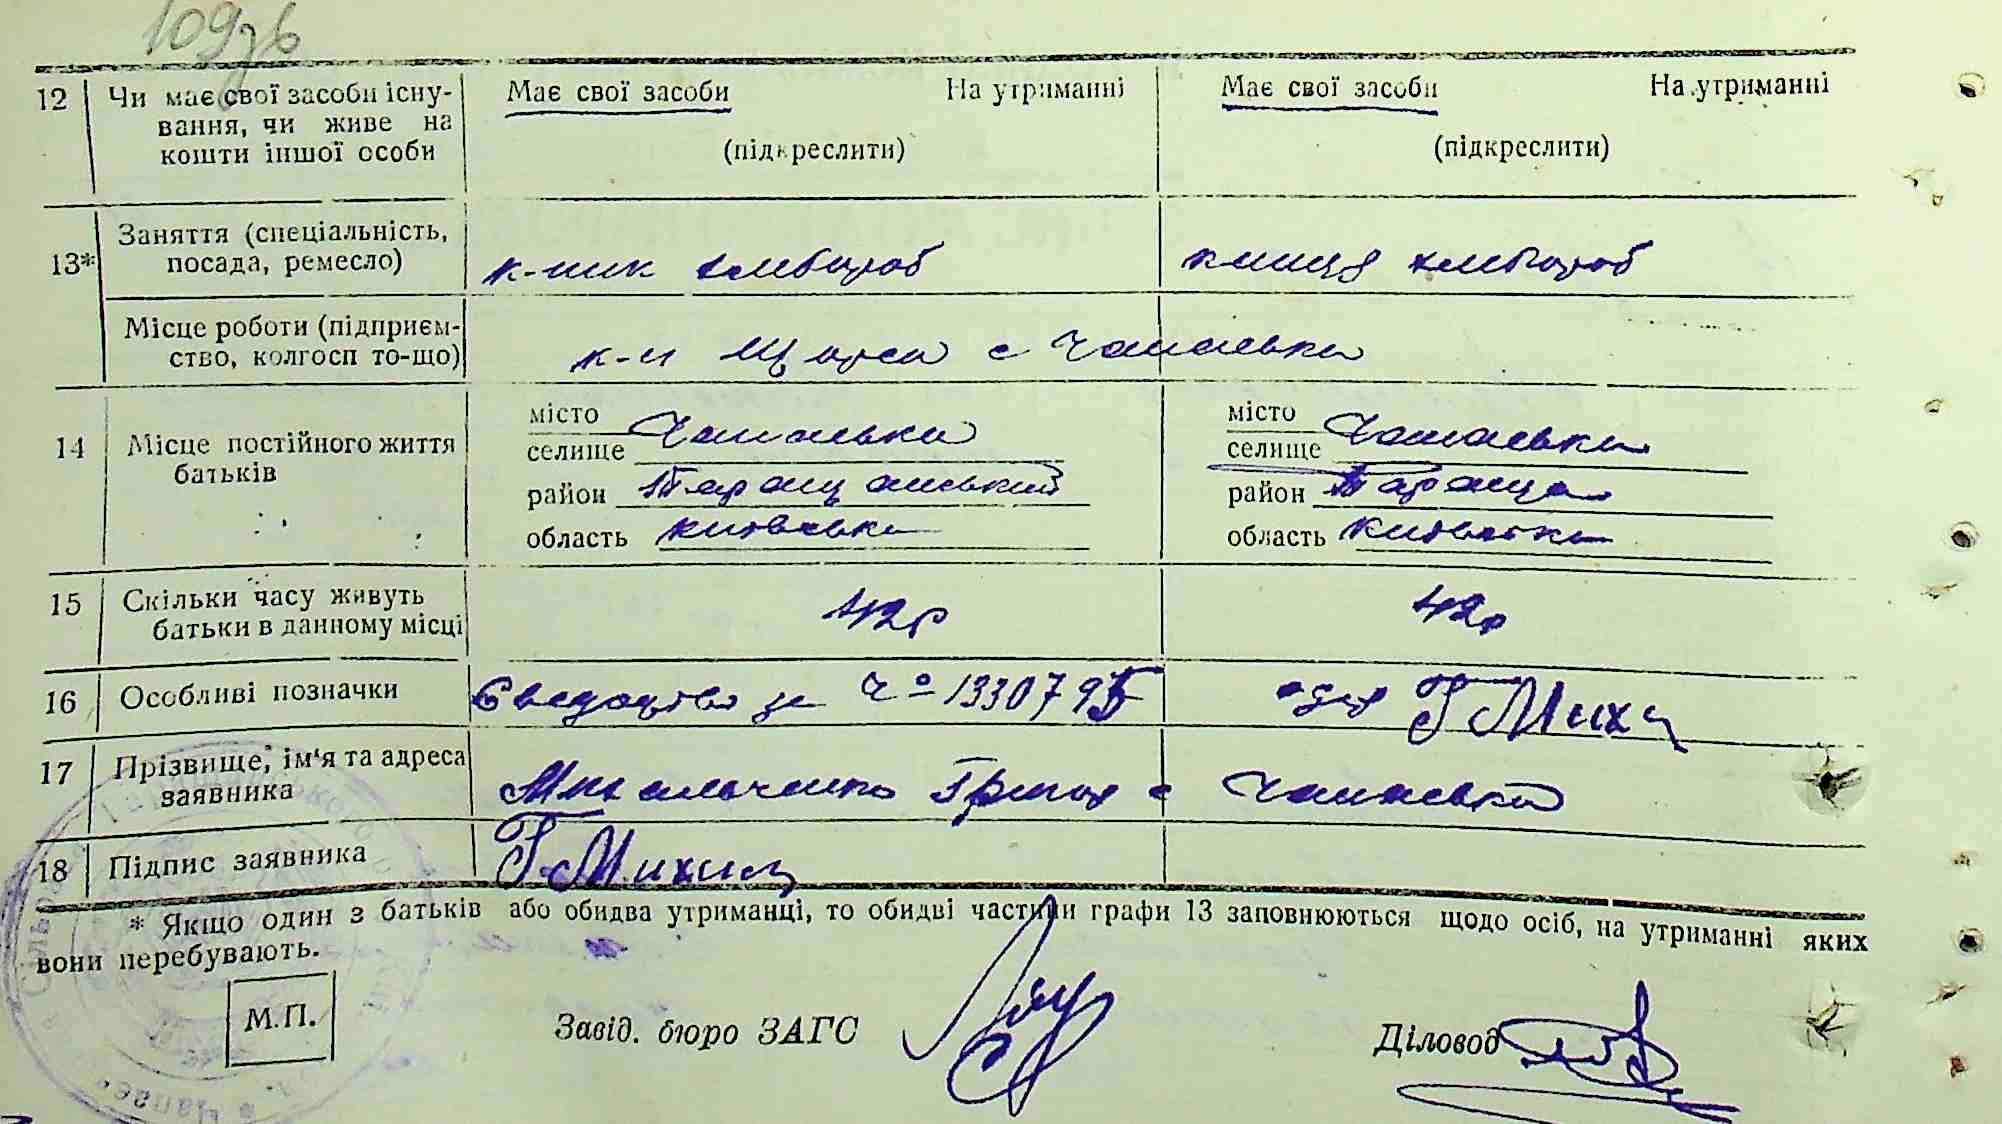 109зв
12 Чи має свої засоби існу- Має свої засоби На утриманні Має свої засоби На утриманні
вання, чи живе на
кошти іншої особи (підкреслити) (підкреслити)
13* Заняття (спеціальність,
посада, ремесло) к-ник хлібороб к-ниця хлібороб
Місце роботи (підприєм-
ство, колгосп то-що) к-п Щорса с Чапаєвка
14 Місце постійного життя
батьків
місто Чапаєвка місто Чапаєвка
селище селище
район Таращанський район Тараща
область київська область київська
15 Скільки часу живуть
батьки в данному місці 42р 42р
16 Особливі позначки Сведоцтво за Ч° 133079 Г Миха
17 Прізвище, ім'я та адреса
заявника Михальченко Григор с Чапаєвка
18 Підпис заявника Г Михал
* Якщо один з батьків або обидва утриманці, то обидві частини графи 13 заповнюються щодо осіб, на утриманні яких
вони перебувають.
М.П. Завід. бюро ЗАГС Діловод